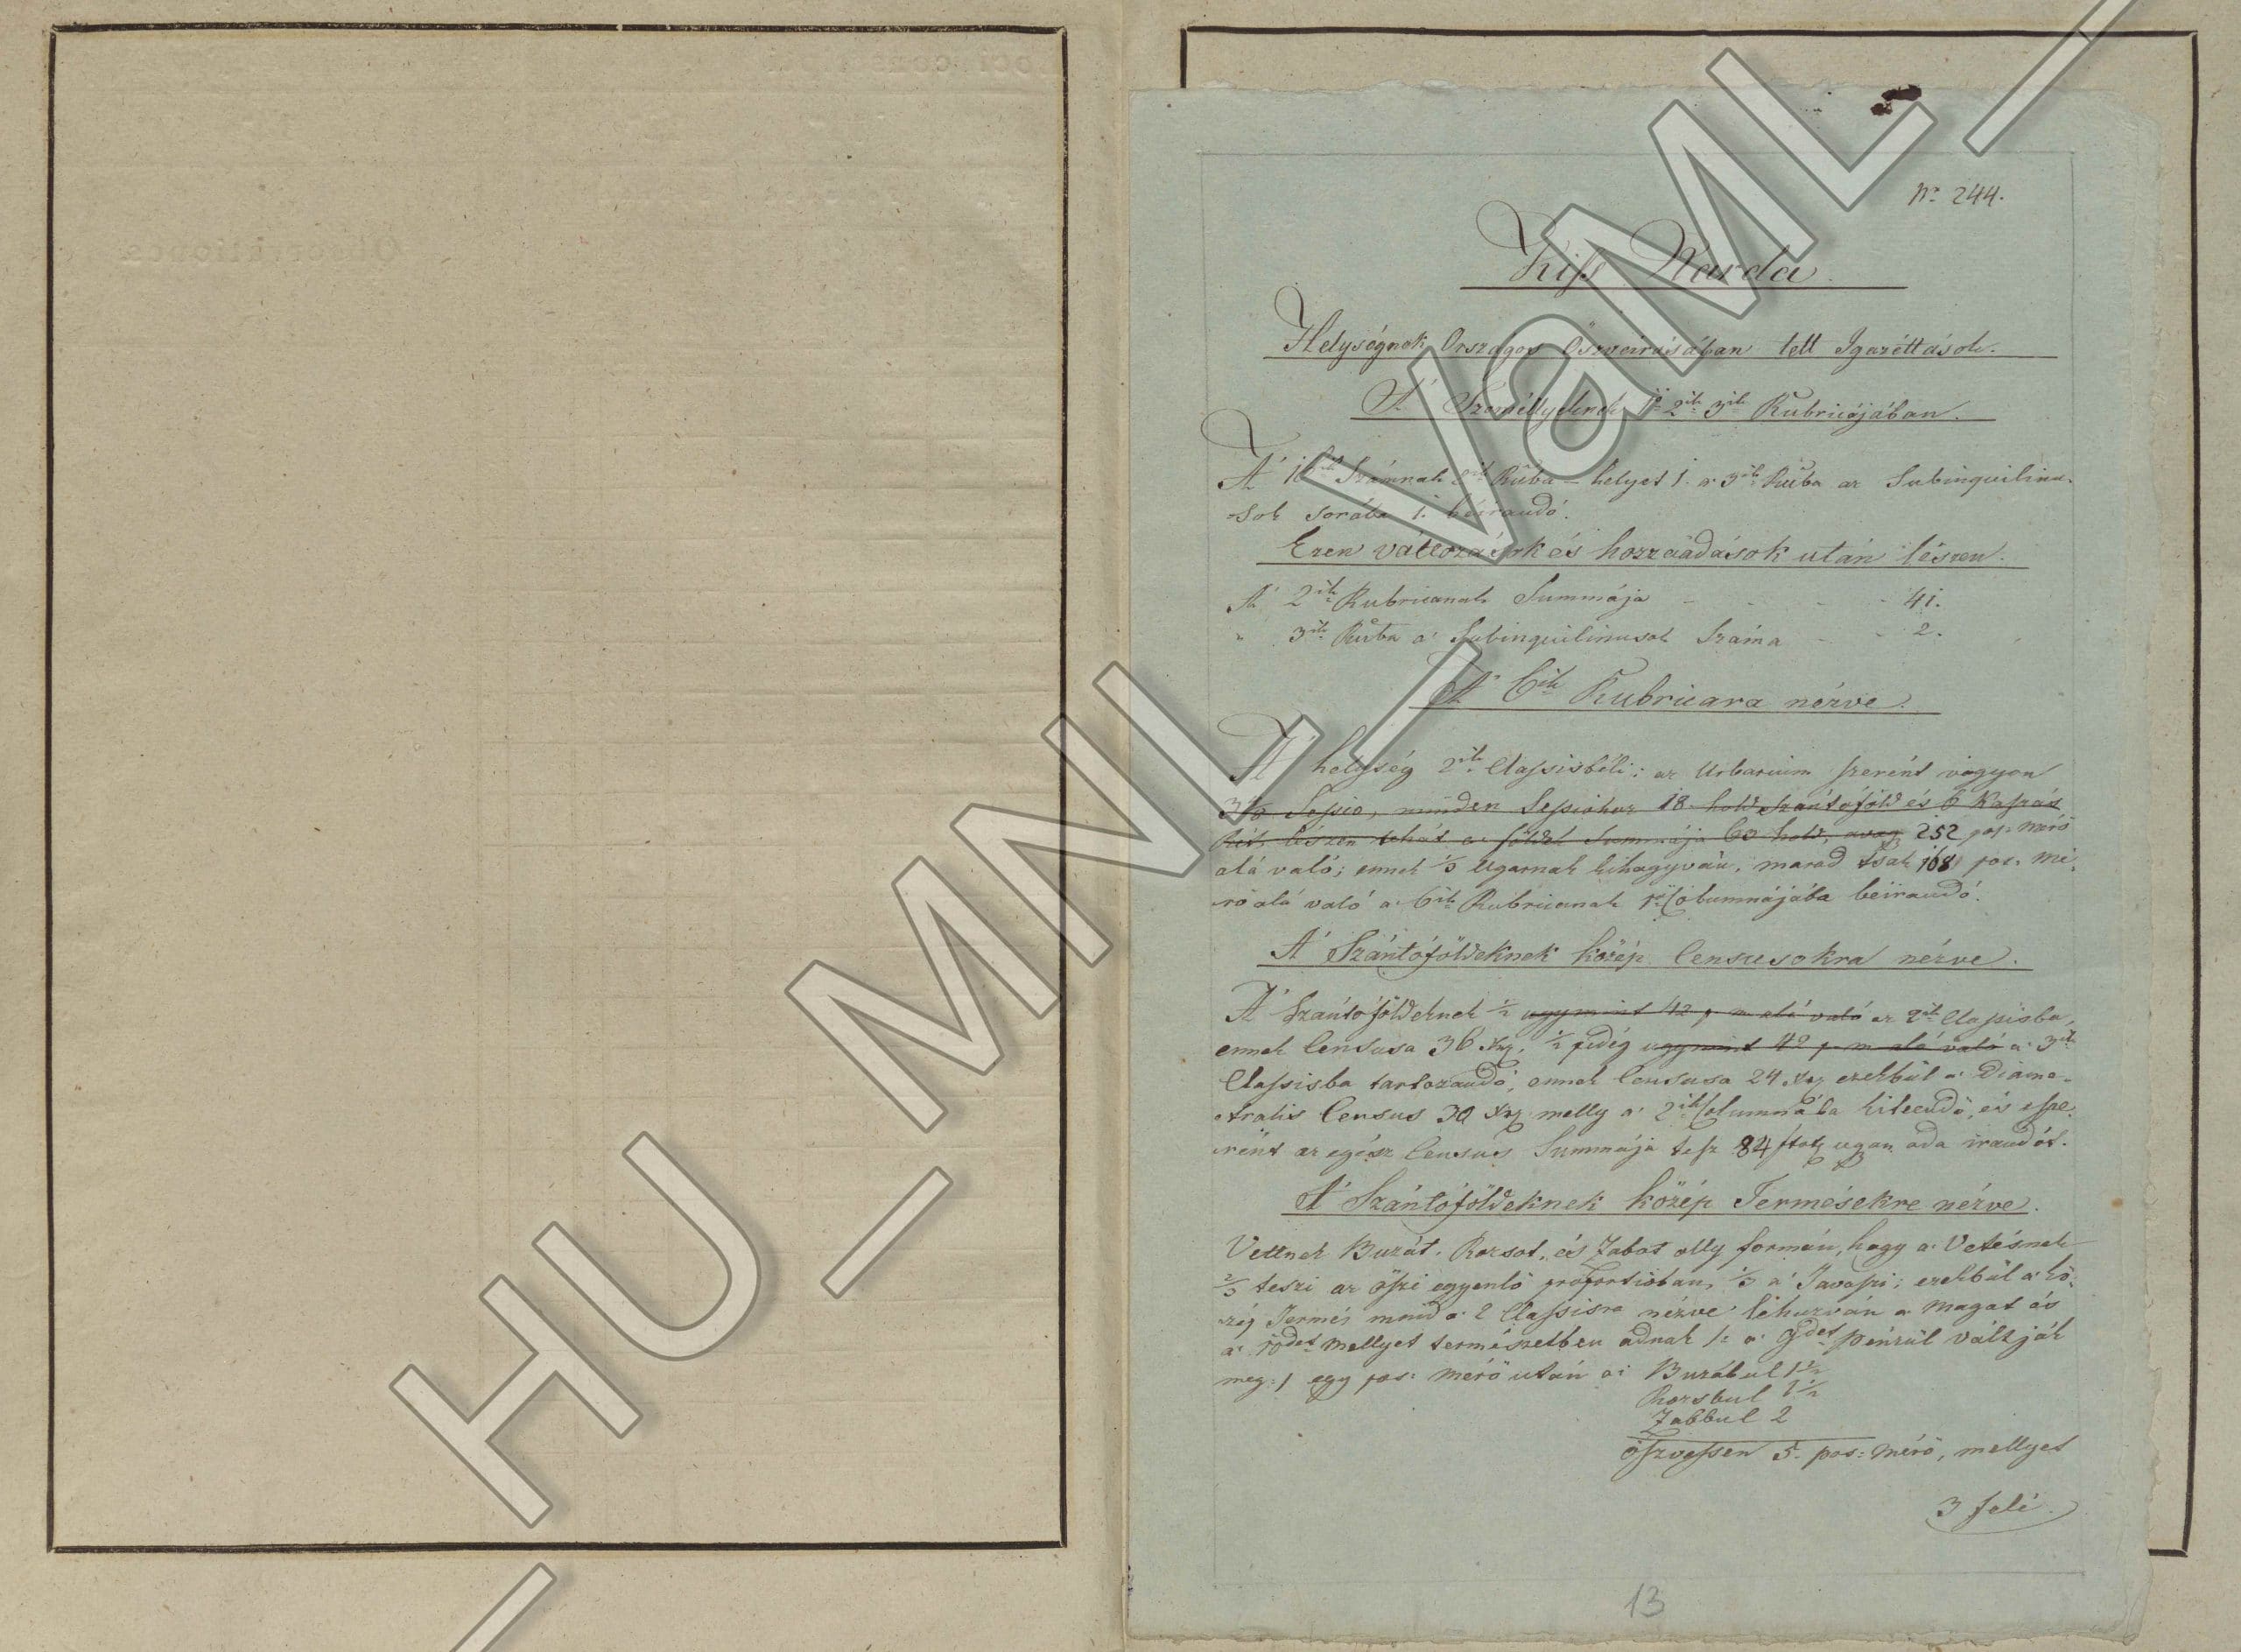 Nº 244.
Kiss Narda
Helységnek Országos Öszveirásában tett Igazéttások.
A' Személlyeknek 1ő 2ik 3ik Rubricájában.
A' 16ik Számnak 2ik Rúba helyet 1. a 3ik Rúba az Subinquilinu-
sok sorába 1. béirandó.
Ezen változások és hozzáadások után lészen.
A' 2ik Rubricanak Summája - - - - 41.
" 3ik Rúba a' Subinquilinusok Száma - - 2.
A' 6ik Rubricara nézve.
A' helység 2ik Classisbéli; az Urbarium szerént vagyon
Sessio, minden Sessiohoz 18 hold szántóföld és 6 Kaszás
Rét, lészen tehát a földek Summája 60 hold, avagy 252 pos: mérő
alá való; ennek 1/3 Ugarnak kihagyván, marad tsak 168 pos: mé-
rő alá való a' 6ik Rubricanak 1ső Columnájába beirandó.
A' Szántóföldeknek közép Censusokra nézve.
A' Szántóföldeknek 1/2 ugymint 42 p. m. alá való az 2ik Classisba,
ennek Censusa 36 xr, 1/2 pedég ugymint 42 p. m. alá való a' 3ik
Classisba tartozandó, ennek Censusa 24 xr ezekbül a' Diame-
tralis Census 30 xr melly a' 2ik Columnába kiteendő, és e sze-
rént az egész Census Summája tesz 84 ftok ugyan oda irandót.
A' Szántóföldeknek közép Termésekre nézve.
Vettnek Buzát, Rozsot, és Zabot olly formán, hogy a' Vetésnek
2/3 teszi az őszi egyenlő proportióban, 1/3 a' Tavaszi; ezekbül a' kö-
zép Termés mind a' 2 Classisra nézve lehuzván a' magot és
a' 10det mellyet természetben adnak /: a' 9det pénzül váltják
meg :/ egy pos: mérő után a': Buzábul 1 1/2
Rozsbul 1 1/2
Zabbul 2
öszvessen 5. pos: mérő, mellyet
3 felé
13
HU_MNL_VaML_